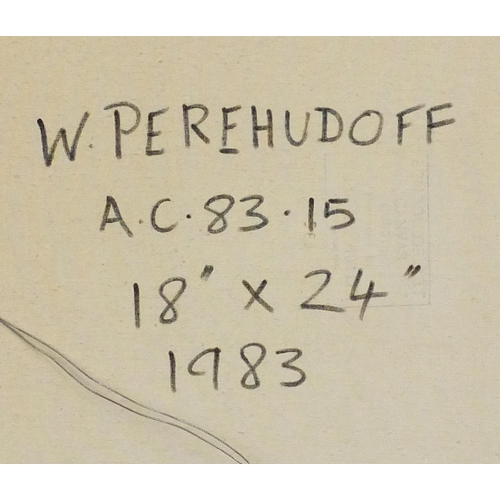 W. PEREHUDOFF
A.C.83.15
18" x 24"
1983